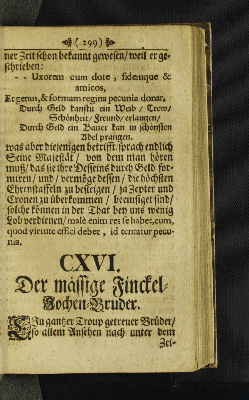 (299)
ner Zeit schon bekannt gewesen/ weil er ge-
schrieben:
- - Uxorem cum dote, fidemque &
amicos,
Et genus, & formam regina pecunia donat.
Durch Geld kanstu ein Weib / Trew/
Schönheit/ Freund/ erlangen/
Durch Geld ein Bauer kan in schönsten
Adel prangen.
was aber diejenigen betrifft/ sprach endlich
Seine Majestät / von dem man hören
muß/ das sie ihre Desseins durch Geld for-
miren / und / vermöge dessen / die höchsten
Ehrenstaffeln zu besteigen / ja Zepter und
Cronen zu überkommen / bemüsiget sind/
solche können in der That bey uns wenig
Lob verdienen/ malè enim res se habet, cum,
quod virtute effici debet, id tentatur pecu-
nia.
CXVI.
Der mässige Finckel-
Jochen-Bruder.
EIn gantzer Troup getreuer Brüder/
so allem Ansehen nach unter dem
Zei-